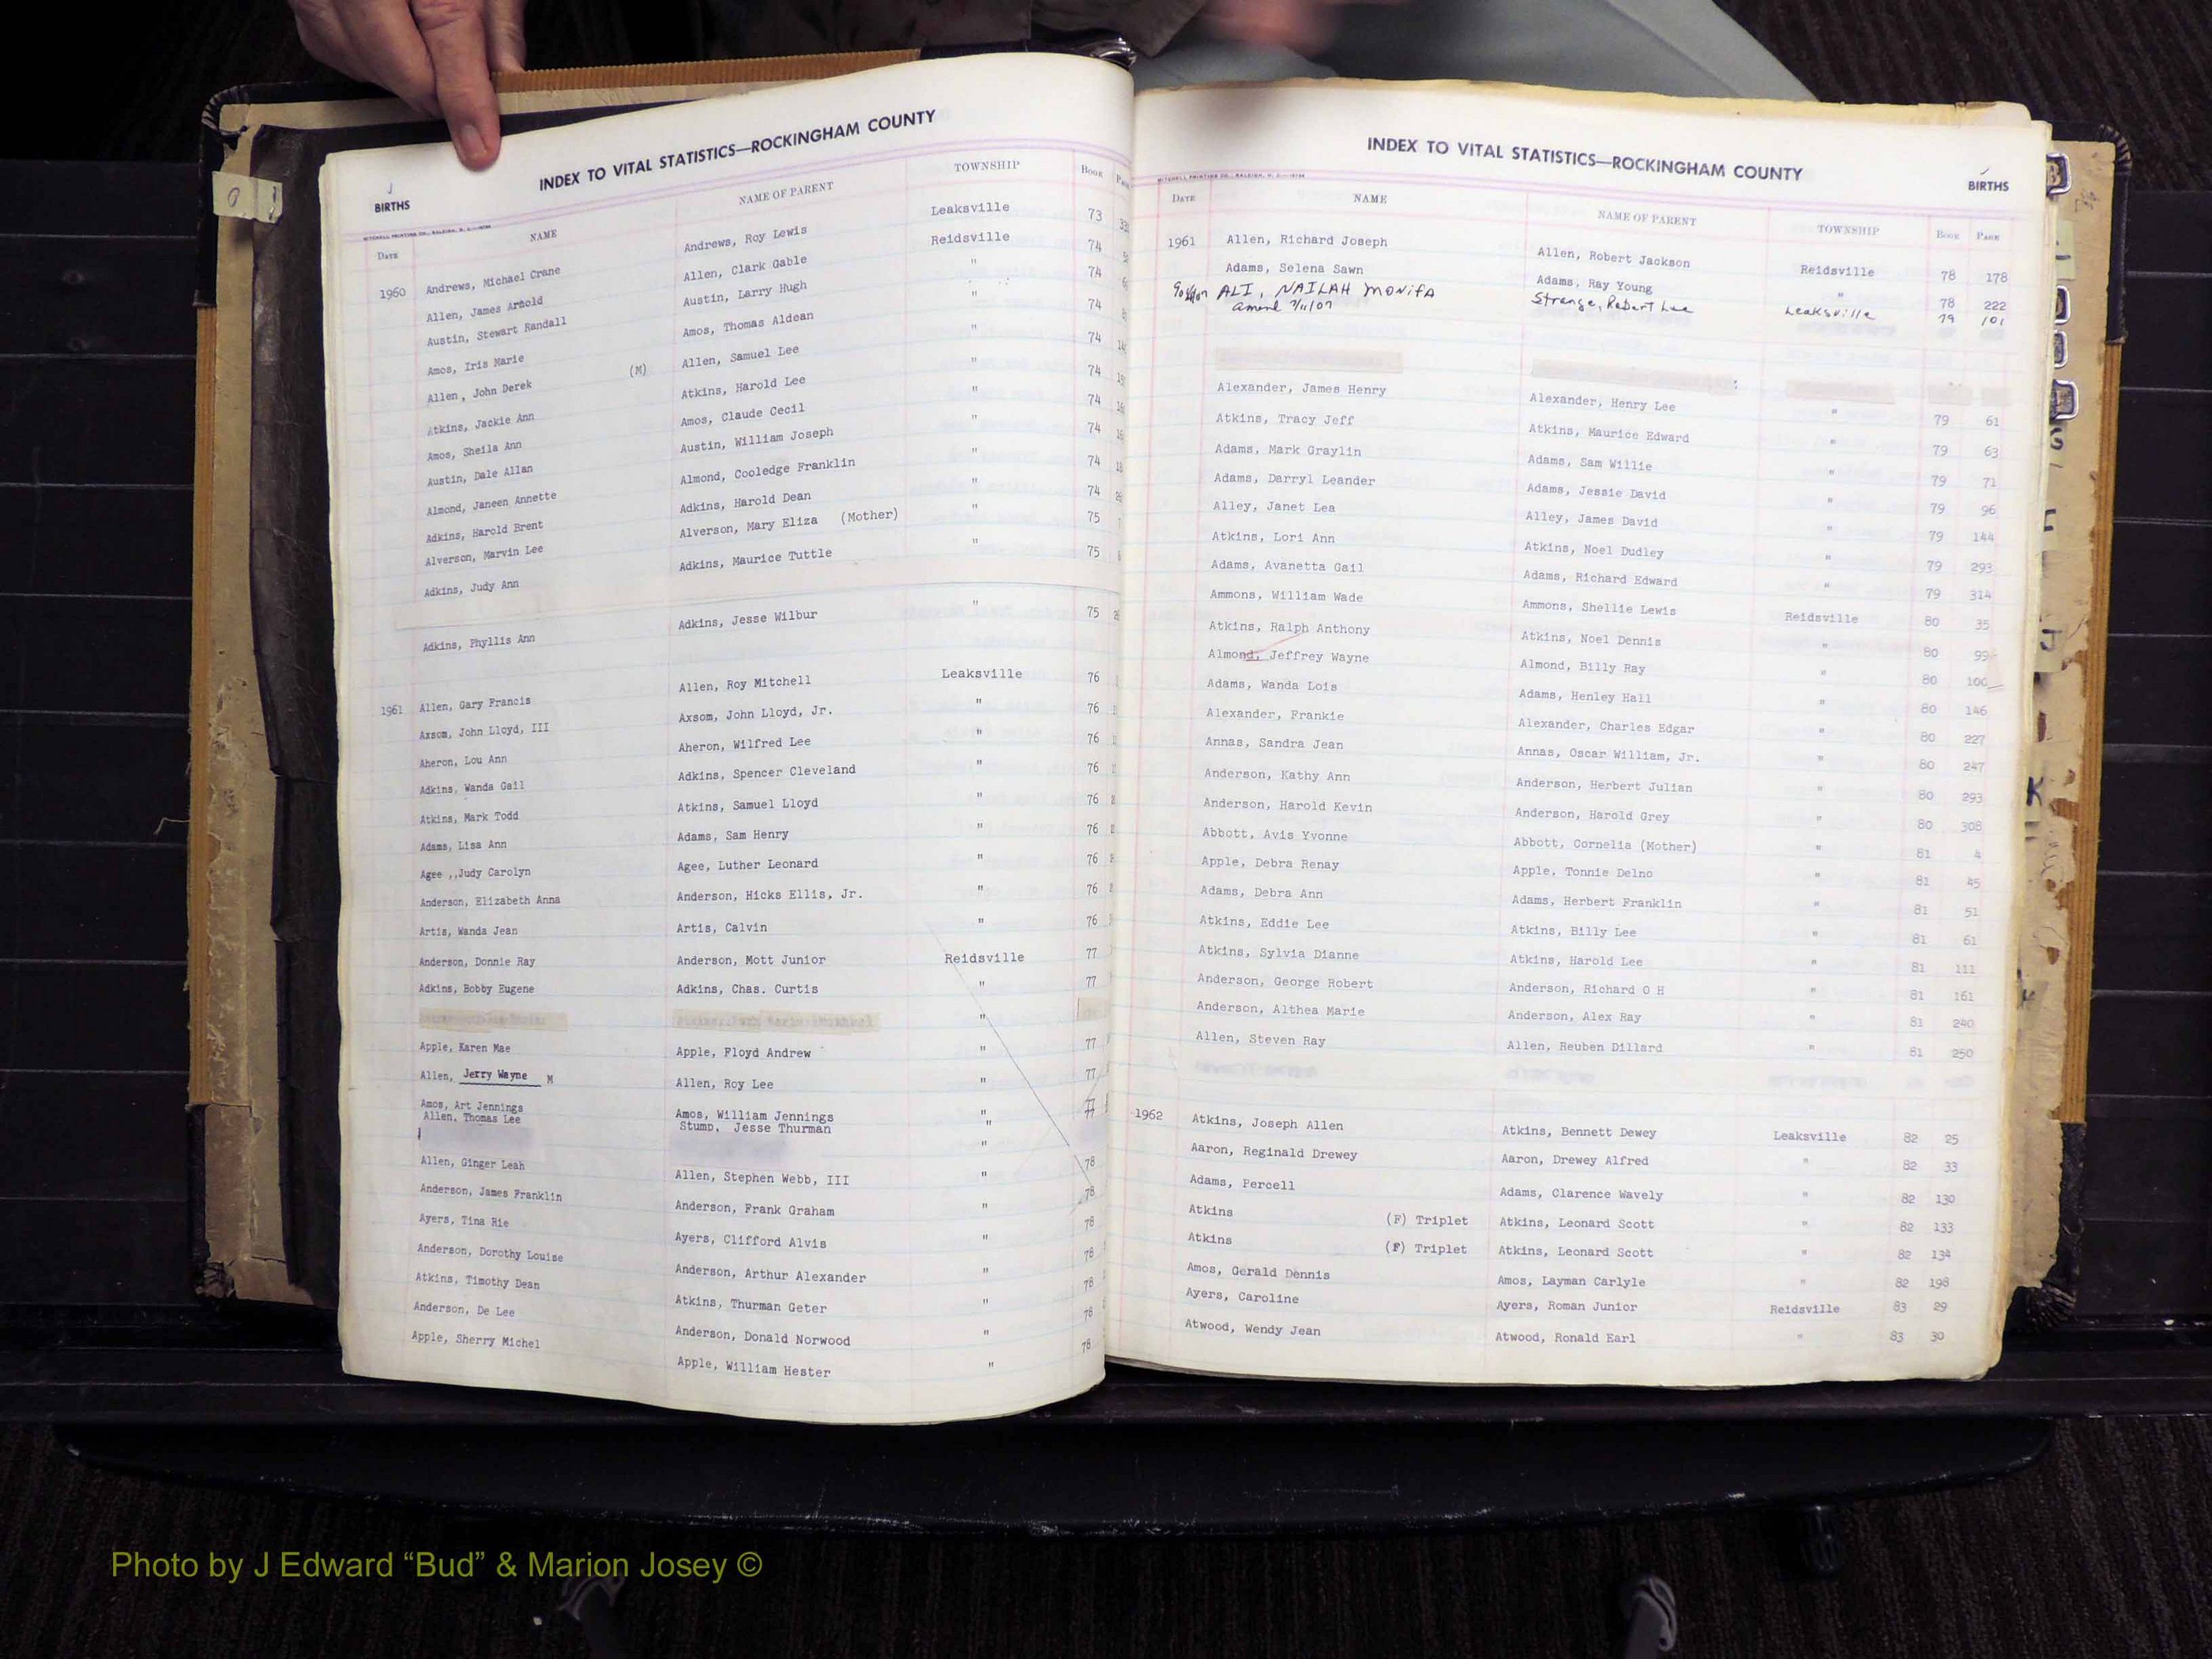 INDEX TO VITAL STATISTICS—ROCKINGHAM COUNTY
BIRTHS
MITCHELL PRINTING CO., RALEIGH, N. C.
DATE NAME NAME OF PARENT TOWNSHIP BOOK
1960 Andrews, Michael Crane Andrews, Roy Lewis Leaksville 73
Allen, James Arnold Allen, Clark Gable Reidsville 74
Austin, Stewart Randall Austin, Larry Hugh " 74
Amos, Iris Marie Amos, Thomas Aldean " 74
Allen, John Derek (M) Allen, Samuel Lee " 74
Atkins, Jackie Ann Atkins, Harold Lee " 74
Amos, Sheila Ann Amos, Claude Cecil " 74
Austin, Dale Allan Austin, William Joseph " 74
Almond, Janeen Annette Almond, Cooledge Franklin " 74
Adkins, Harold Brent Adkins, Harold Dean " 74
Alverson, Marvin Lee Alverson, Mary Eliza (Mother) " 75
Adkins, Judy Ann Adkins, Maurice Tuttle " 75
Adkins, Phyllis Ann Adkins, Jesse Wilbur " 75
1961 Allen, Gary Francis Allen, Roy Mitchell Leaksville 76
Axsom, John Lloyd, III Axsom, John Lloyd, Jr. " 76
Aheron, Lou Ann Aheron, Wilfred Lee " 76
Adkins, Wanda Gail Adkins, Spencer Cleveland " 76
Atkins, Mark Todd Atkins, Samuel Lloyd " 76
Adams, Lisa Ann Adams, Sam Henry " 76
Agee ,,Judy Carolyn Agee, Luther Leonard " 76
Anderson, Elizabeth Anna Anderson, Hicks Ellis, Jr. " 76
Artis, Wanda Jean Artis, Calvin " 76
Anderson, Donnie Ray Anderson, Mott Junior Reidsville 77
Adkins, Bobby Eugene Adkins, Chas. Curtis " 77
"
Apple, Karen Mae Apple, Floyd Andrew " 77
Allen, Jerry Wayne M Allen, Roy Lee " 77
Amos, Art Jennings Amos, William Jennings " 77
Allen, Thomas Lee Stump, Jesse Thurman " 77
"
Allen, Ginger Leah Allen, Stephen Webb, III " 78
Anderson, James Franklin Anderson, Frank Graham " 78
Ayers, Tina Rie Ayers, Clifford Alvis " 78
Anderson, Dorothy Louise Anderson, Arthur Alexander " 78
Atkins, Timothy Dean Atkins, Thurman Geter " 78
Anderson, De Lee Anderson, Donald Norwood " 78
Apple, Sherry Michel Apple, William Hester " 78
INDEX TO VITAL STATISTICS—ROCKINGHAM COUNTY
BIRTHS
MITCHELL PRINTING CO., RALEIGH, N. C.
DATE NAME NAME OF PARENT TOWNSHIP BOOK PAGE
1961 Allen, Richard Joseph Allen, Robert Jackson Reidsville 78 178
Adams, Selena Sawn Adams, Ray Young " 78 222
ALI, NAILAH MONIFA Strange, Robert Lee Leaksville 79 101
amend 7/11/07
Alexander, James Henry Alexander, Henry Lee " 79 61
Atkins, Tracy Jeff Atkins, Maurice Edward " 79 63
Adams, Mark Graylin Adams, Sam Willie " 79 71
Adams, Darryl Leander Adams, Jessie David " 79 96
Alley, Janet Lea Alley, James David " 79 144
Atkins, Lori Ann Atkins, Noel Dudley " 79 293
Adams, Avanetta Gail Adams, Richard Edward " 79 314
Ammons, William Wade Ammons, Shellie Lewis Reidsville 80 35
Atkins, Ralph Anthony Atkins, Noel Dennis " 80 99
Almond, Jeffrey Wayne Almond, Billy Ray " 80 100
Adams, Wanda Lois Adams, Henley Hall " 80 146
Alexander, Frankie Alexander, Charles Edgar " 80 227
Annas, Sandra Jean Annas, Oscar William, Jr. " 80 247
Anderson, Kathy Ann Anderson, Herbert Julian " 80 293
Anderson, Harold Kevin Anderson, Harold Grey " 80 308
Abbott, Avis Yvonne Abbott, Cornelia (Mother) " 81 4
Apple, Debra Renay Apple, Tonnie Delno " 81 45
Adams, Debra Ann Adams, Herbert Franklin " 81 51
Atkins, Eddie Lee Atkins, Billy Lee " 81 61
Atkins, Sylvia Dianne Atkins, Harold Lee " 81 111
Anderson, George Robert Anderson, Richard O H " 81 161
Anderson, Althea Marie Anderson, Alex Ray " 81 240
Allen, Steven Ray Allen, Reuben Dillard " 81 250
1962 Atkins, Joseph Allen Atkins, Bennett Dewey Leaksville 82 25
Aaron, Reginald Drewey Aaron, Drewey Alfred " 82 33
Adams, Percell Adams, Clarence Wavely " 82 130
Atkins (F) Triplet Atkins, Leonard Scott " 82 133
Atkins (F) Triplet Atkins, Leonard Scott " 82 134
Amos, Gerald Dennis Amos, Layman Carlyle " 82 198
Ayers, Caroline Ayers, Roman Junior Reidsville 83 29
Atwood, Wendy Jean Atwood, Ronald Earl " 83 30
Photo by J Edward “Bud” & Marion Josey ©